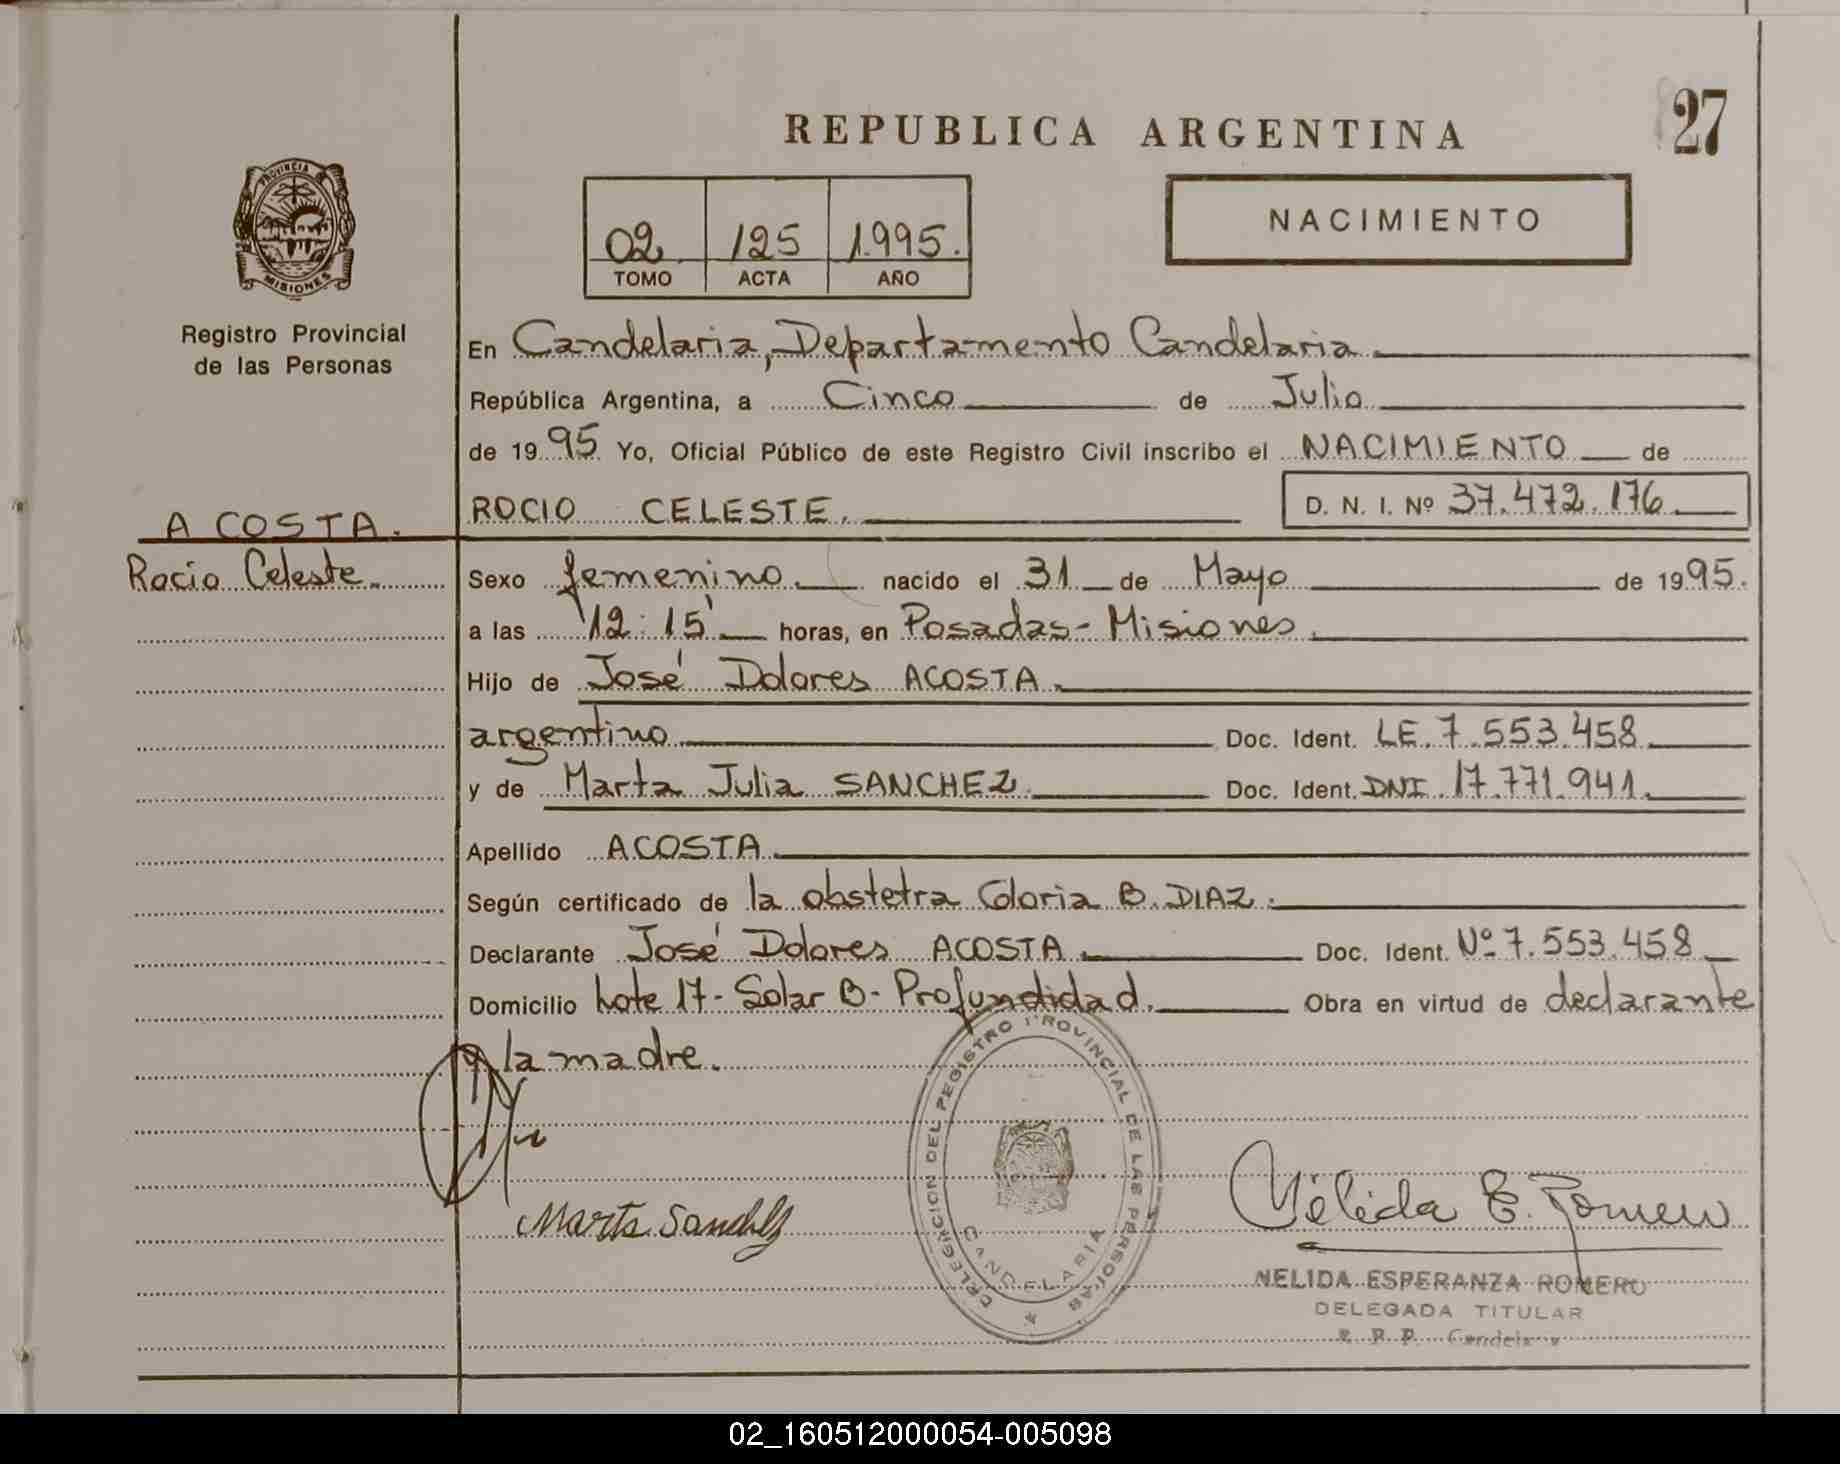 REPUBLICA ARGENTINA
27
PROVINCIA
MISIONES
Registro Provincial
de las Personas
02 125 1.995.
TOMO ACTA AÑO
NACIMIENTO
En Candelaria, Departamento Candelaria
República Argentina, a Cinco de Julio
de 19 95 Yo, Oficial Público de este Registro Civil inscribo el NACIMIENTO de
ROCIO CELESTE. D. N. I. Nº 37.472.176
ACOSTA.
Rocio Celeste.
Sexo femenino. nacido el 31 de Mayo de 19 95.
a las 12:15' horas, en Posadas - Misiones.
Hijo de José Dolores ACOSTA.
argentino Doc. Ident. LE. 7.553.458
y de Marta Julia SANCHEZ. Doc. Ident. DNI. 17.771.941.
Apellido ACOSTA
Según certificado de la obstetra Gloria B. DIAZ.
Declarante José Dolores ACOSTA Doc. Ident. Nº 7.553.458
Domicilio Lote 17 - Solar B - Profundidad. Obra en virtud de declarante
y la madre.
DELEGACION DEL REGISTRO PROVINCIAL DE LAS PERSONAS
CANDELARIA
Marta Sanchez
Nélida E. Romero
NELIDA ESPERANZA ROMERO
DELEGADA TITULAR
02_160512000054-005098